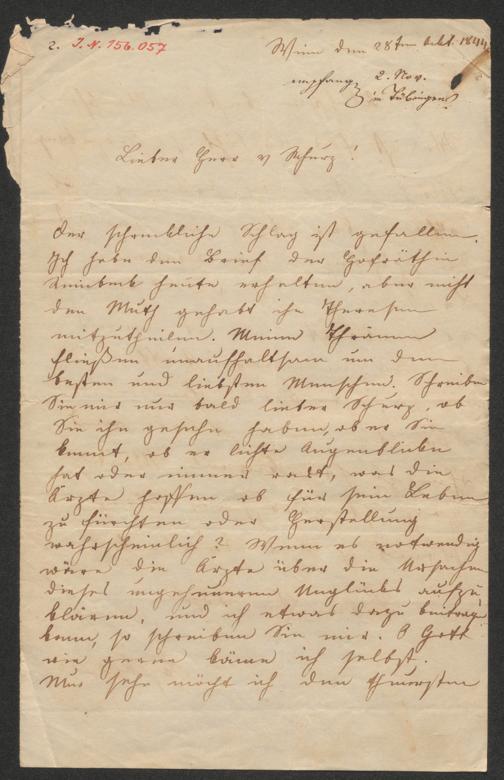 2. J. N. 156.057
Wien den 28ten Okt. 1844
empfang. 2. Nov.
in Tübingen.
Lieber Herr v Schurz!
Der schreckliche Schlag ist gefallen.
Ich habe den Brief der Hofräthin
Reinbeck heute erhalten, aber nicht
den Muth gehabt ihn Theresen
mitzutheilen. Meine Thränen
fließen unaufhaltsam um den
besten und liebsten Menschen. Schreiben
Sie mir nur bald lieber Schurz, ob
Sie ihn gesehn haben, ob er Sie
kennt, ob er lichte Augenblicke
hat oder immer rast, was die
Ärzte hoffen ob für sein Leben
zu fürchten oder Herstellung
wahrscheinlich? Wenn es nothwendig
wäre die Ärzte über die Ursachen
dieses ungeheueren Unglücks aufzu
klären, und ich etwas dazu beitragen
kann, so schreiben Sie mir. O Gott
wie gerne käme ich selbst.
Nur sehn möcht ich den theuersten